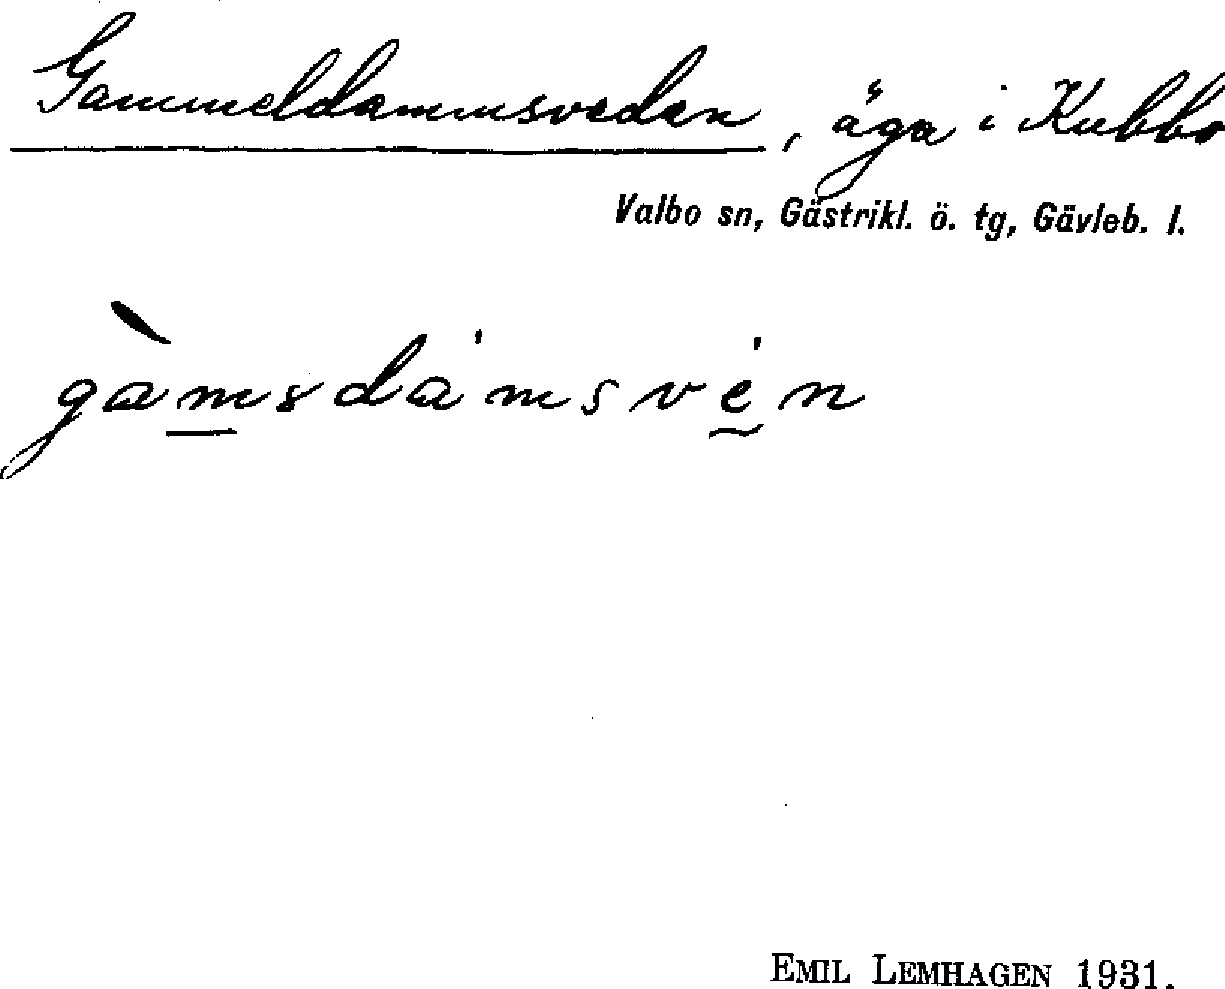 Gammeldammsvedan, äga i Kubbo
Valbo sn, Gästrikl. ö. tg, Gävleb. l.
gàmsdámsvén
EMIL LEMHAGEN 1931.